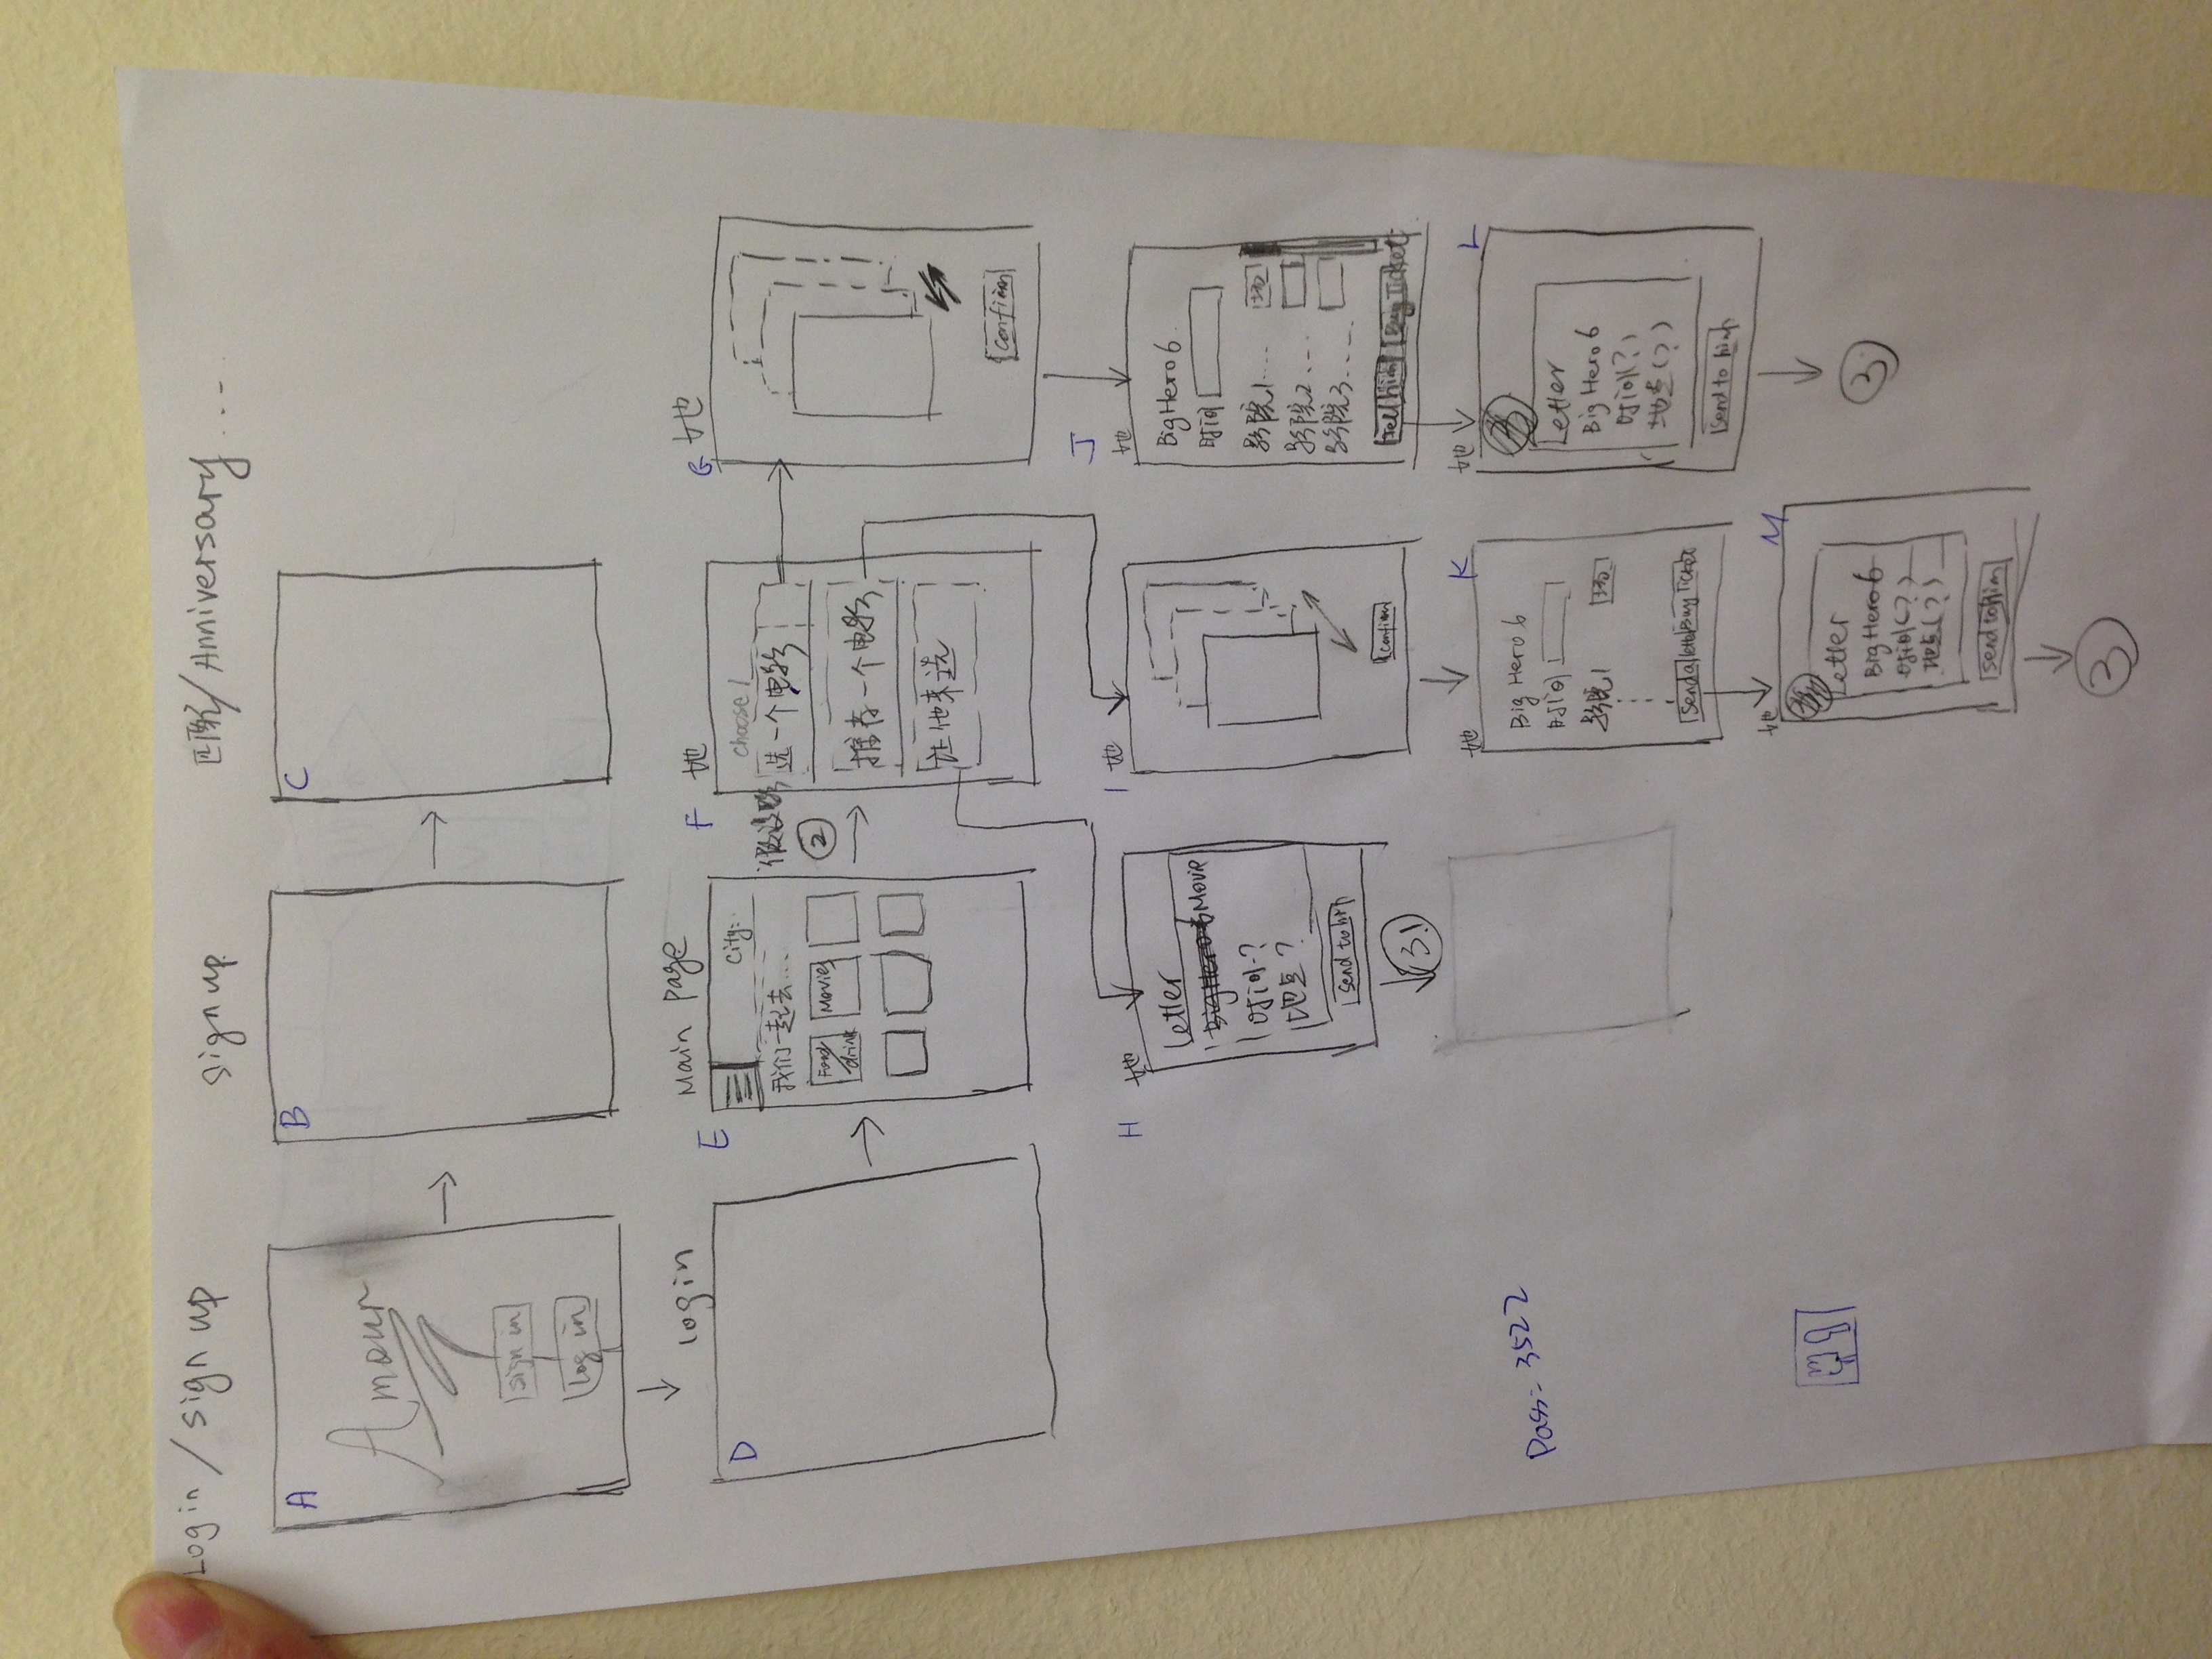 Login / sign up
sign up
匹配/Anniversary ...
A
Amour
sign in
log in
B
C
login
D
E
Main page
City:
我们一起去...
Food/drink
Movies
②
F
地
choose 1
选一个电影
推荐一个电影
让他来选
G
地
confirm
H
地
Letter
Big Hero 6 Movie
时间?
地点?
send to him
3!
I
地
confirm
J
地
Big Hero 6
时间
影院1....
影院2....
影院3.....
Tell him
Buy Ticket
K
地
Big Hero 6
时间
影院1
Send a letter
Buy Ticket
L
地
Letter
Big Hero 6
时间(?)
地点(?)
Send to him
3
Pass: 3522
M
地
Letter
Big Hero 6
时间(?)
地点(?)
send to him
3